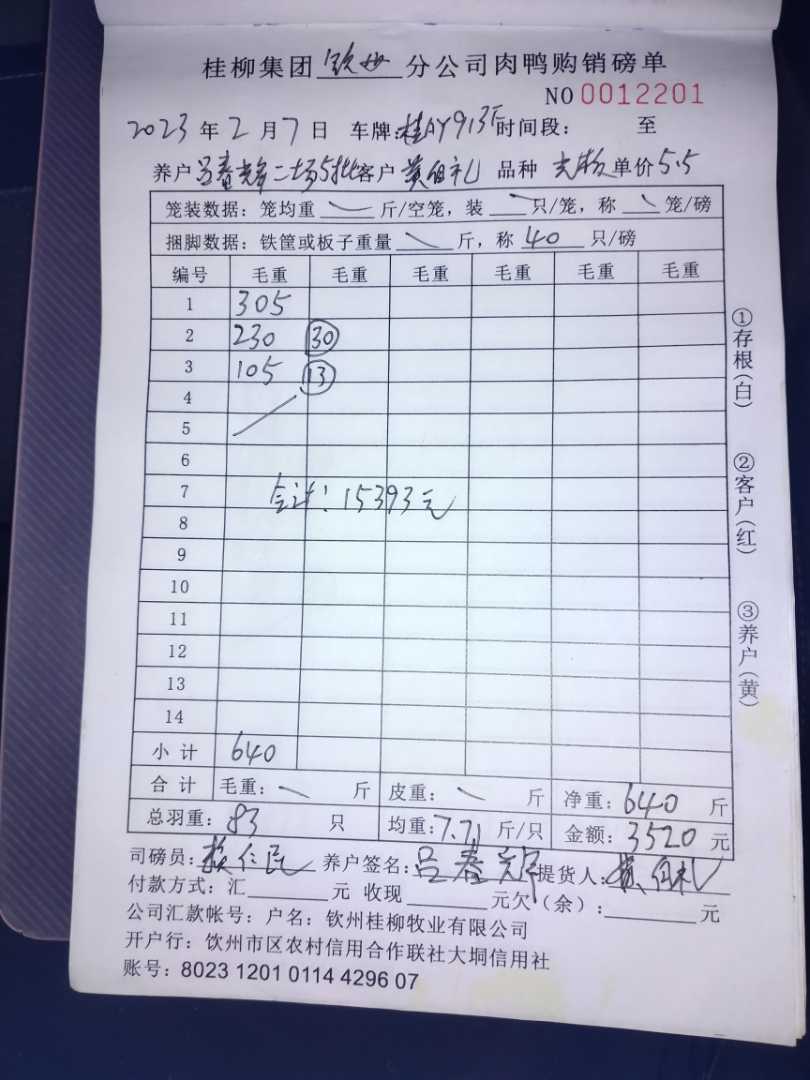 桂柳集团 钦州 分公司肉鸭购销磅单
NO 0012201
2023 年 2 月 7 日 车牌:桂AY913F 时间段: 至
养户 吕春 二场5批 客户 黄伯礼 品种 单价 5.5
笼装数据: 笼均重 斤/空笼, 装 只/笼, 称 笼/磅
捆脚数据: 铁筐或板子重量 斤, 称 40 只/磅
编号 毛重 毛重 毛重 毛重 毛重 毛重
1 305
2 230 30
3 105 13
4
5
6
7 合计: 15393元
8
9
10
11
12
13
14
小计 640
合计 毛重: 斤 皮重: 斤 净重: 640 斤
总羽重: 83 只 均重: 7.71 斤/只 金额: 3520 元
司磅员: 仁民 养户签名: 吕春 提货人: 黄伯礼
付款方式: 汇 元 收现 元欠(余): 元
公司汇款帐号: 户名: 钦州桂柳牧业有限公司
开户行: 饮州市区农村信用合作联社大垌信用社
账号: 8023 1201 0114 4296 07
①存根(白)
②客户(红)
③养户(黄)